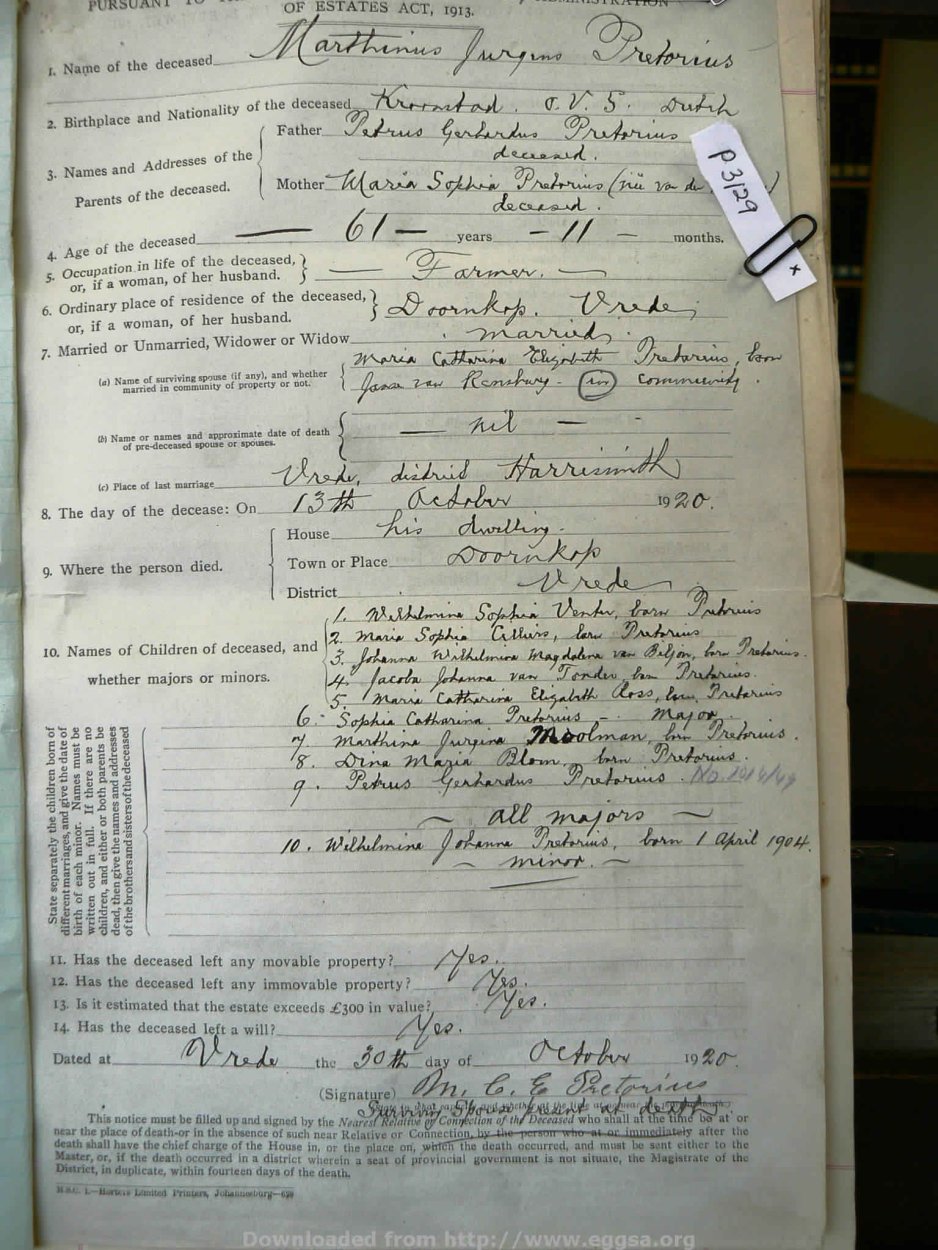 PURSUANT TO
ADMINISTRATION
OF ESTATES ACT, 1913.
1. Name of the deceased Marthinus Jurgens Pretorius
2. Birthplace and Nationality of the deceased Kroonstad. O.V.S. Dutch
3. Names and Addresses of the Parents of the deceased.
Father Petrus Gerhardus Pretorius
deceased.
Mother Maria Sophia Pretorius (née van der
deceased.
P 3/29
x
4. Age of the deceased — 61 — years — 11 — months.
5. Occupation in life of the deceased, or, if a woman, of her husband. } — Farmer. —
6. Ordinary place of residence of the deceased, or, if a woman, of her husband. } Doornkop. Vrede
7. Married or Unmarried, Widower or Widow married.
(a) Name of surviving spouse (if any), and whether married in community of property or not.
Maria Catharina Elizabeth Pretorius, born
Janse van Rensburg - (in) community.
(b) Name or names and approximate date of death of pre-deceased spouse or spouses.
— nil —
(c) Place of last marriage Vrede, district Harrismith
8. The day of the decease: On 13th October 1920.
9. Where the person died.
House his dwelling.
Town or Place Doornkop
District Vrede
10. Names of Children of deceased, and whether majors or minors.
1. Wilhelmina Sophia Venter, born Pretorius
2. Maria Sophia Cilliers, born Pretorius
3. Johanna Wilhelmina Magdalena van Biljon, born Pretorius.
4. Jacoba Johanna van Tonder, born Pretorius.
5. Maria Catharina Elizabeth Ross, born Pretorius
6. Sophia Catharina Pretorius - major.
7. Marthina Jurgina Moolman, born Pretorius.
8. Dina Maria Blom, born Pretorius.
9. Petrus Gerhardus Pretorius.
~ all majors ~
10. Wilhelmina Johanna Pretorius, born 1 April 1904.
~ minor. ~
State separately the children born of
different marriages, and give the date of
birth of each minor. Names must be
written out in full. If there are no
children, and either or both parents be
dead, then give the names and addresses
of the brothers and sisters of the deceased
11. Has the deceased left any movable property? Yes.
12. Has the deceased left any immovable property? Yes.
13. Is it estimated that the estate exceeds £300 in value? Yes.
14. Has the deceased left a will? Yes.
Dated at Vrede the 30th day of October 1920
(Signature) M. C. E Pretorius
Surviving Spouse present at death.
This notice must be filled up and signed by the Nearest Relative or Connection of the Deceased who shall at the time be at or
near the place of death-or in the absence of such near Relative or Connection, by the person who at or immediately after the
death shall have the chief charge of the House in, or the place on, which the death occurred, and must be sent either to the
Master, or, if the death occurred in a district wherein a seat of provincial government is not situate, the Magistrate of the
District, in duplicate, within fourteen days of the death.
Hortors Limited Printers, Johannesburg
Downloaded from http://www.eggsa.org